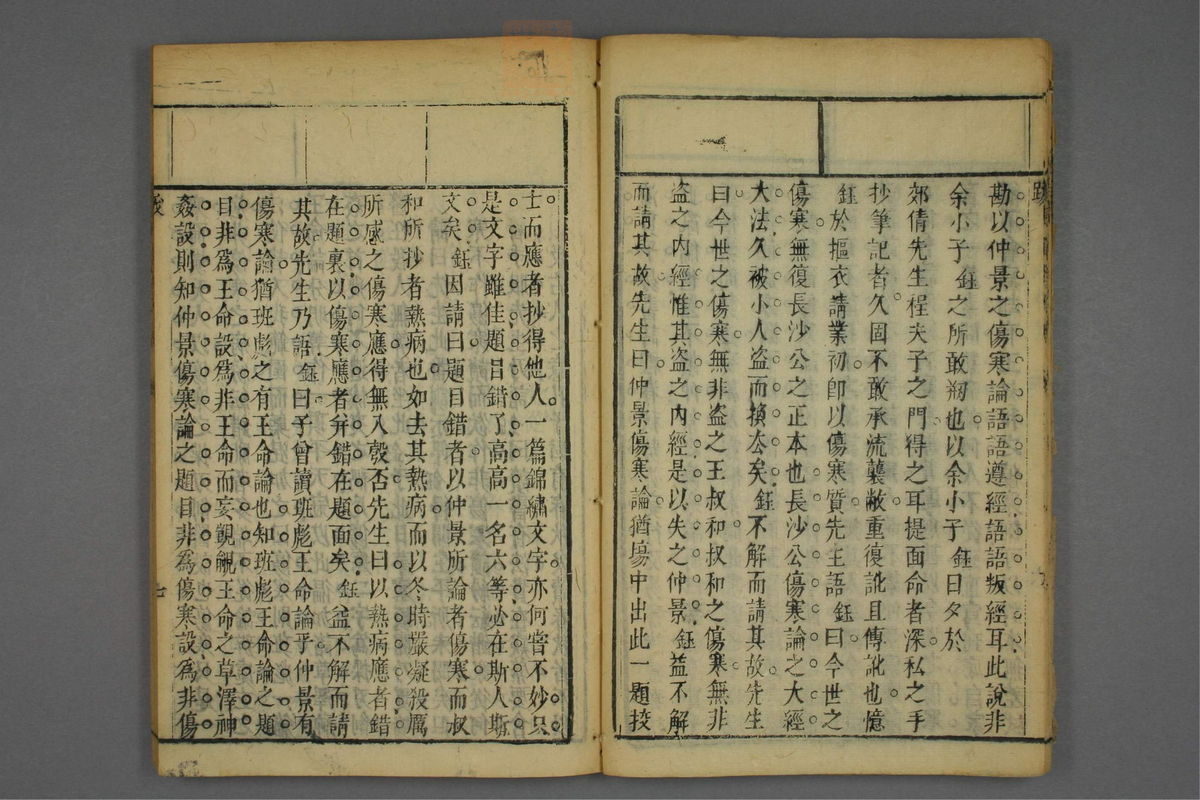 勘以仲景之傷寒論語語遵經語語叛經耳此說非
余小子鈺之所敢糊也以余小子鈺日夕於
郊倩先生程夫子之門得之耳提面命者深私之手
抄筆記者久固不敢承流襲敝重復訛且傳訛也憶
鈺於摳衣請業初卽以傷寒質先生語鈺曰今世之
傷寒無復長沙公之正本也長沙公傷寒論之大經
大法久被小人盜而換厺矣鈺不解而請其故先生
曰今世之傷寒無非盜之王叔和叔和之傷寒無非
盜之內經惟其盜之內經是以失之仲景鈺益不解
而請其故先生曰仲景傷寒論猶場中出此一題挍
士而應者抄得他人一篇錦繡文字亦何嘗不妙只
是文字雖佳題目錯了高高一名六等必在斯人斯
文矣鈺因請曰題目錯者以仲景所論者傷寒而叔
和所抄者熱病也如去其熱病而以冬時嚴凝殺厲
所感之傷寒應得無入彀否先生曰以熱病應者錯
在題裏以傷寒應者幷錯在題面矣鈺益不解而請
其故先生乃語鈺曰子曾讀班彪王命論乎仲景有
傷寒論猶班彪之有王命論也知班彪王命論之題
目非爲王命設爲非王命而妄覬覦王命之草澤神
姦設則知仲景傷寒論之題目非爲傷寒設爲非傷